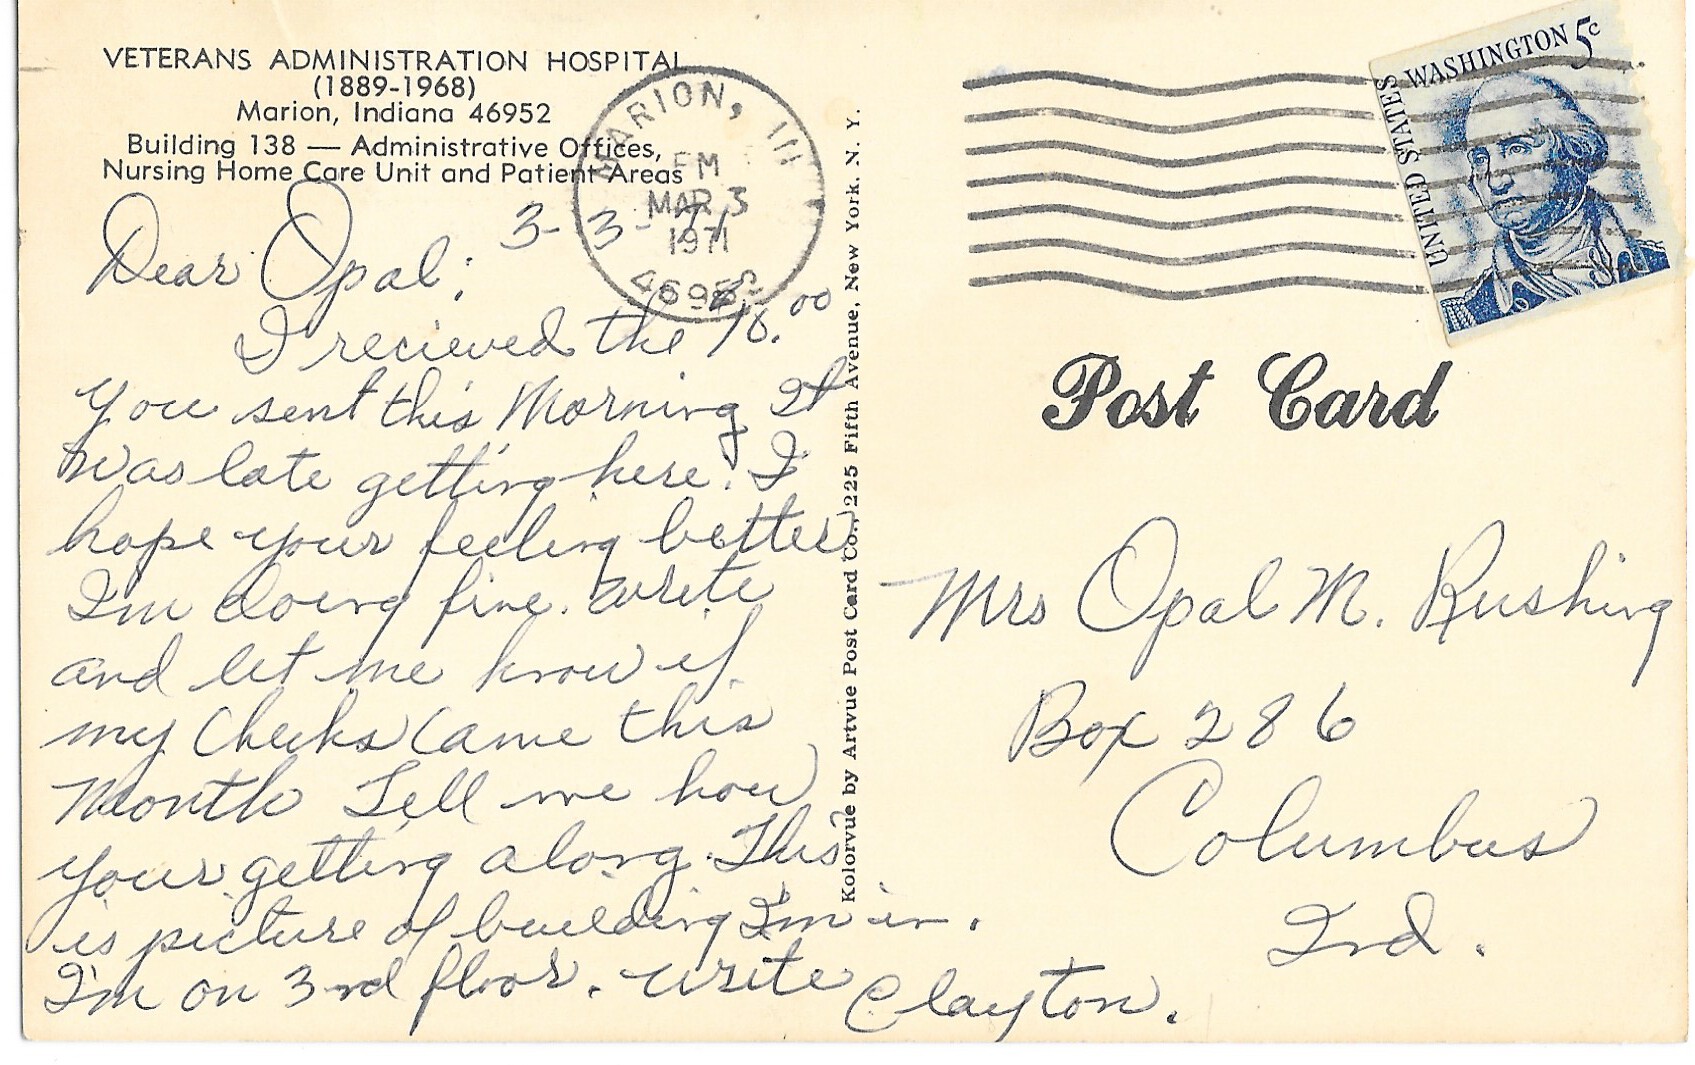 VETERANS ADMINISTRATION HOSPITAL
(1889-1968)
Marion, Indiana 46952
Building 138 — Administrative Offices,
Nursing Home Care Unit and Patient Areas
MARION, IN
PM
MAR 3
1971
46952
WASHINGTON 5c
UNITED STATES
3-3-71
Dear Opal;
I recieved the $10.00
you sent this Morning It
was late getting here. I
hope your feeling better
I'm doing fine. Write
and let me know if
my Checks Came this
Month Tell me how
your getting along. This
is picture of building I'm in.
I'm on 3rd floor. write
Clayton.
Kolorvue by Artvue Post Card Co., 225 Fifth Avenue, New York, N. Y.
Post Card
Mrs Opal M. Rushing
Box 286
Columbus
Ind.